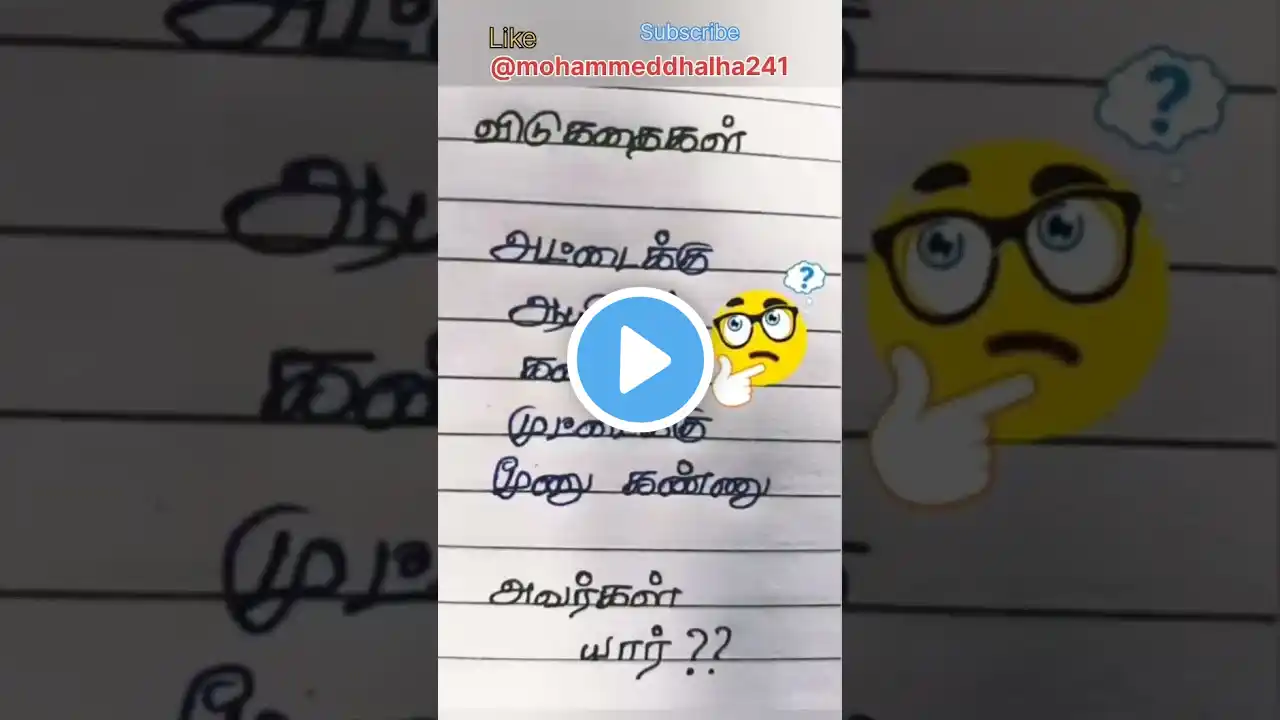 Like
Subscribe
@mohammeddhalha241
விடுகதைகள்
அட்டைக்கு
முட்டைக்கு
மூணு கண்ணு
அவர்கள்
யார் ??